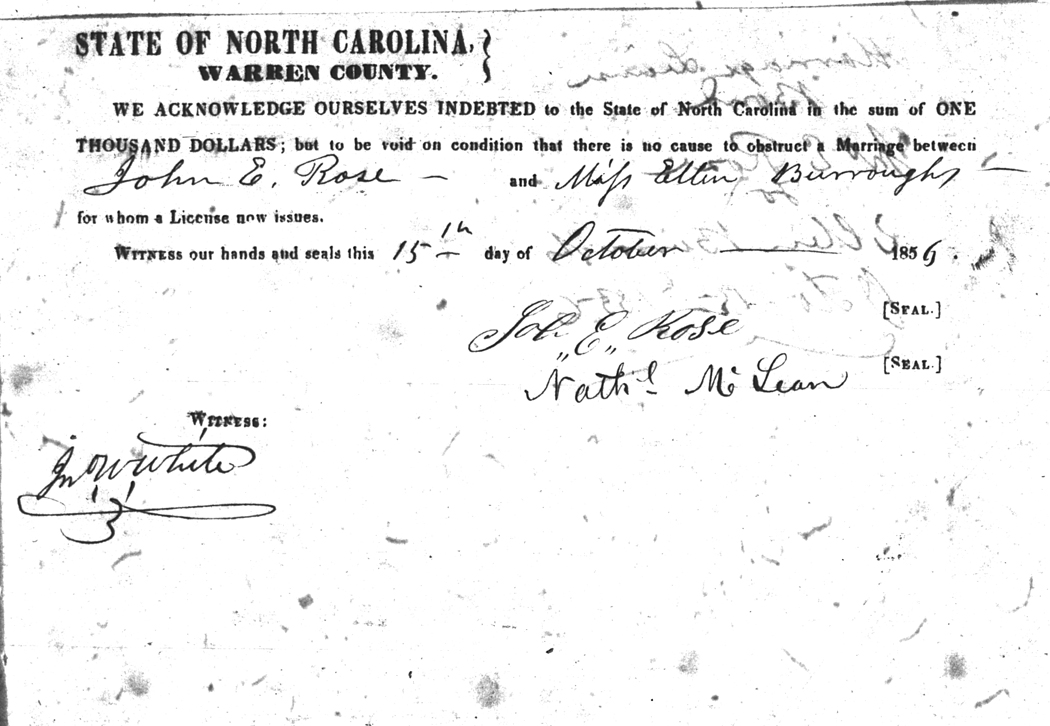 STATE OF NORTH CAROLINA,
WARREN COUNTY.
WE ACKNOWLEDGE OURSELVES INDEBTED to the State of North Carolina in the sum of ONE
THOUSAND DOLLARS; but to be void on condition that there is no cause to obstruct a Marriage between
John E. Rose — and Miss Ellin Burroughs —
for whom a License now issues.
WITNESS our hands and seals this 15th day of October 1856.
[SEAL.]
Joh "E" Rose
[SEAL.]
Nathl McLean
WITNESS:
Jno W White